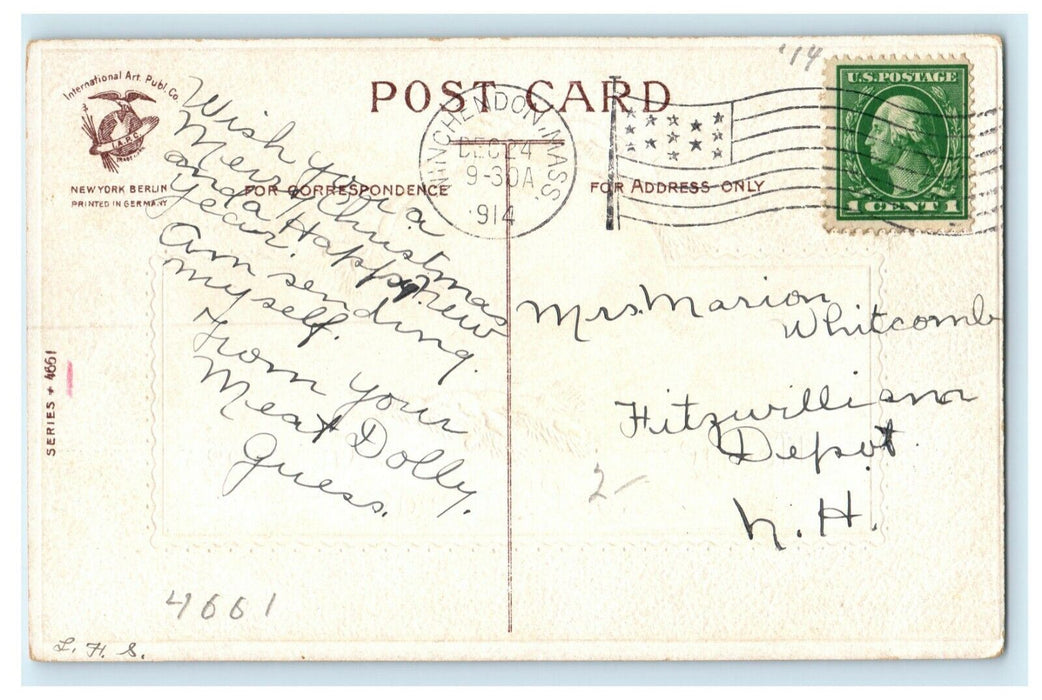 '14
International Art. Publ. Co.
I.A.P.C.
NEW YORK BERLIN
PRINTED IN GERMANY
POST CARD
FOR CORRESPONDENCE
FOR ADDRESS ONLY
WINCHENDON, MASS.
DEC 24
9-30A
1914
U.S. POSTAGE
1 CENT 1
Wish you a
Merry Christmas
and a Happy New
Year.
Am sending
myself.
From your
Meat Dolly.
Guess.
Mrs. Marion
Whitcomb
Fitzwilliam
Depot
N. H.
2-
SERIES + 4661
4661
L. H. S.